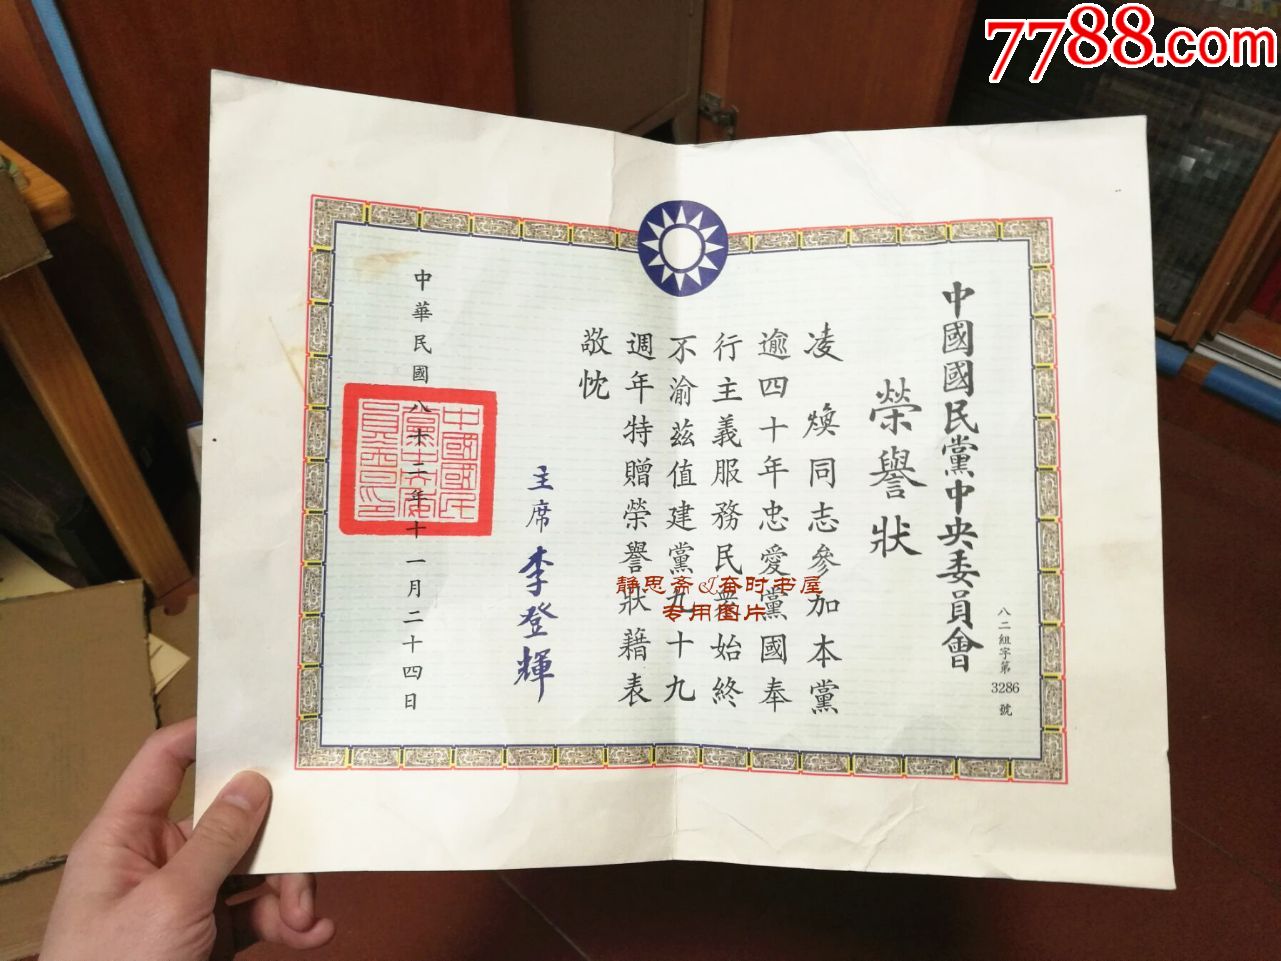 7788.com
中國國民黨中央委員會
榮譽狀
八二組字第3286號
凌 煥同志參加本黨
逾四十年忠愛黨國奉
行主義服務民眾始終
不渝茲值建黨九十九
週年特贈榮譽狀藉表
敬忱
主席 李登輝
中華民國八十二年十一月二十四日
中國國民
黨中央委
員會之印
静思斋&奋时书屋
专用图片